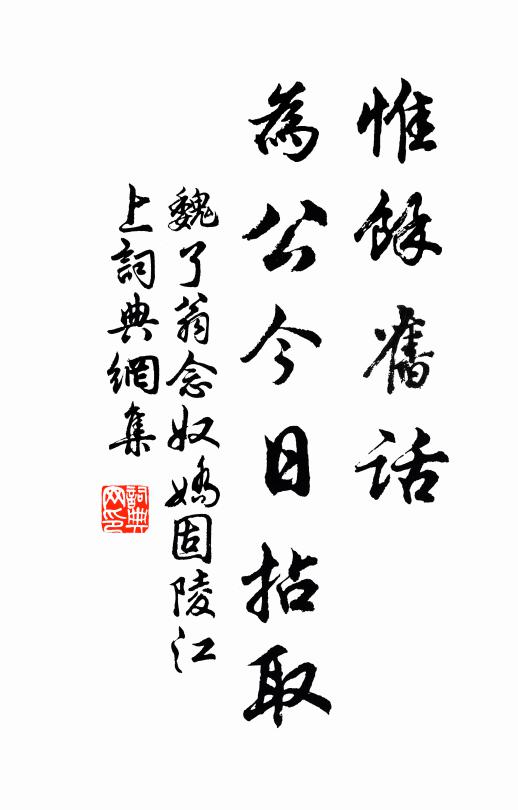 惟餘舊話
為公今日拈取
魏了翁念奴嬌固陵江
上詞典網集
詞典網印